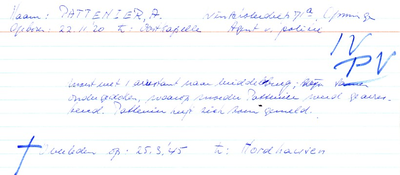 Naam: PATTENIER, A.
Geboren: 22.11.20 te: Oostkapelle Agent v. politie
IV
PV
moest met 1 arrestant naar Middelburg,
ondergedoken, waarop moeder Pattenier werd gearres-
teerd. Pattenier nog
gemeld.
Overleden op: 25.3.'45 te: Nordhausen